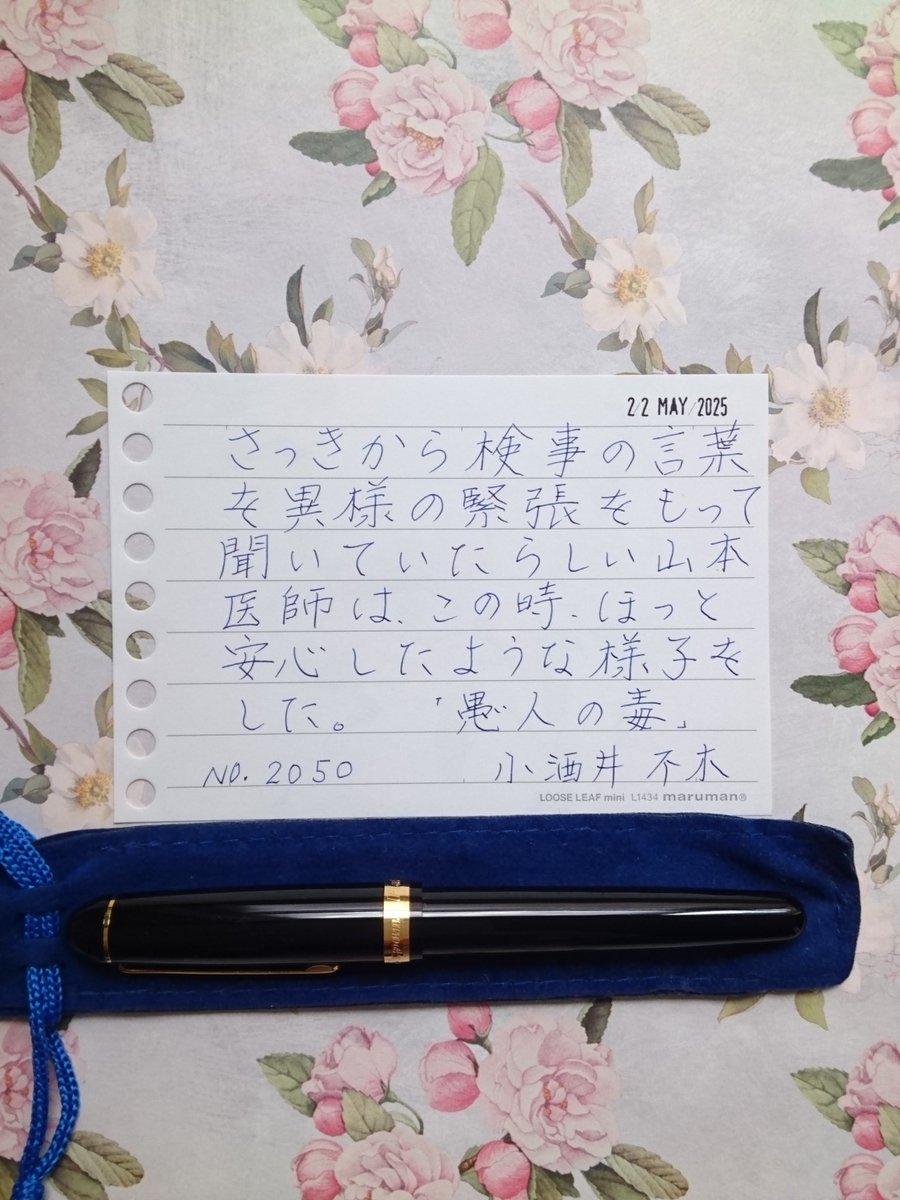 22 MAY 2025
さっきから検事の言葉
を異様の緊張をもって
聞いていたらしい山本
医師は、この時、ほっと
安心したような様子を
した。 「愚人の毒」
NO. 2050 小酒井 不木
LOOSE LEAF mini L1434 maruman®